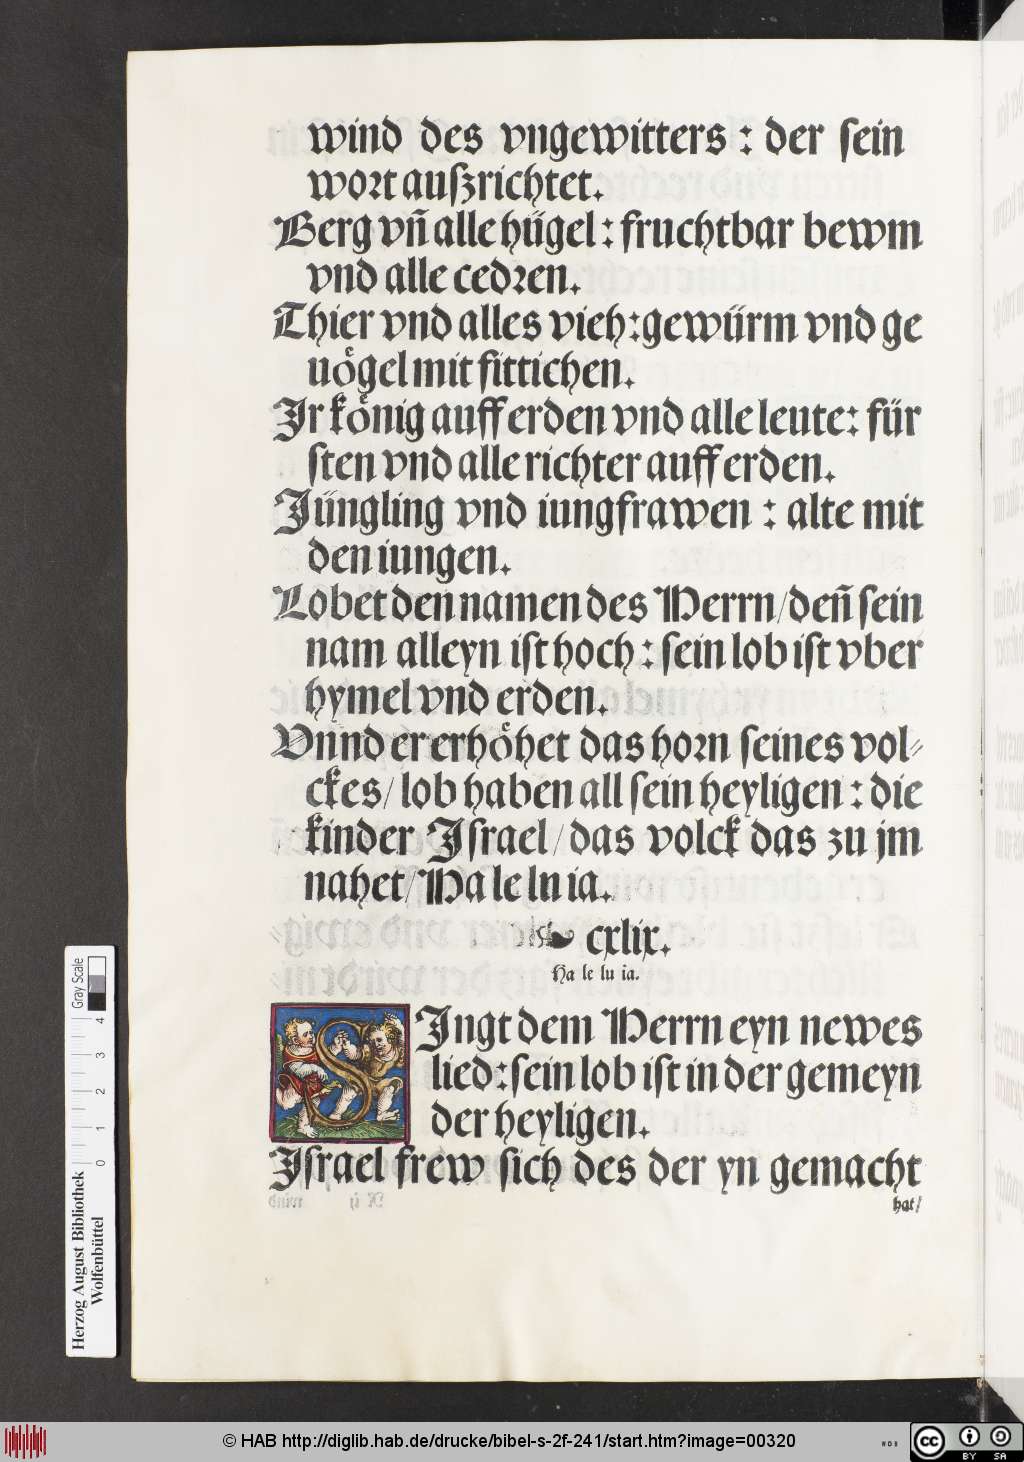 wind des vngewitters : der sein
wort auszrichtet.
Berg vñ alle hügel : fruchtbar bewm
vnd alle cedren.
Thier vnd alles vieh : gewürm vnd ge
uögel mit fittichen.
Jr könig auff erden vnd alle leute : für
sten vnd alle richter auff erden.
Jüngling vnd iungfrawen : alte mit
den iungen.
Lobet den namen des Herrn/ deñ sein
nam alleyn ist hoch : sein lob ist vber
hymel vnd erden.
Vnnd er erhöhet das horn seines vol⸗
ckes/ lob haben all sein heyligen : die
kinder Jsrael/ das volck das zu jm
nahet/ Ha le lu ia.
cxlix.
Ha le lu ia.
SJngt dem Herrn eyn newes
lied : sein lob ist in der gemeyn
der heyligen.
Jsrael frew sich des der yn gemacht
hat/
Herzog August Bibliothek
Wolfenbüttel
Gray Scale
0 1 2 3 4
© HAB http://diglib.hab.de/drucke/bibel-s-2f-241/start.htm?image=00320
WDB
cc BY SA